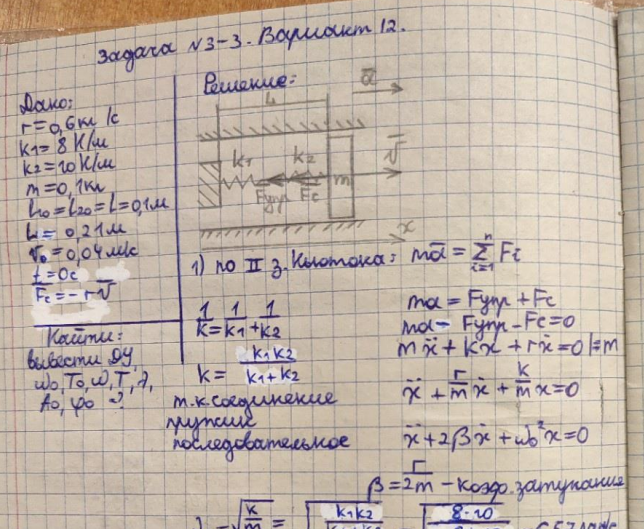 Задача N3-3. Вариант 12.
Дано:
r=0,6кг/с
k1=8 Н/м
k2=10 Н/м
m=0,1кг
l10=l20=l=0,1м
L=0,21м
v0=0,04м/с
t=0c
Fc=-rv̅
Найти:
вывести ДУ,
ω0, T0, ω, T, λ,
A0, φ0 ?
Решение:
L
a̅
k1
k2
m
v̅
Fупр
Fc
x
1) по II з. Ньютона: ma̅ = Σ Fi
n
i=1
1/k = 1/k1 + 1/k2
k = k1k2/(k1+k2)
т.к. соединение
пружин
последовательное
ma = Fупр + Fc
ma - Fупр - Fc = 0
mẍ + kx + rẋ = 0 |÷m
ẍ + r/m ẋ + k/m x = 0
ẍ + 2βẋ + ω0²x = 0
β = r/2m - коэф. затухания
√k/m =
k1k2
8·10